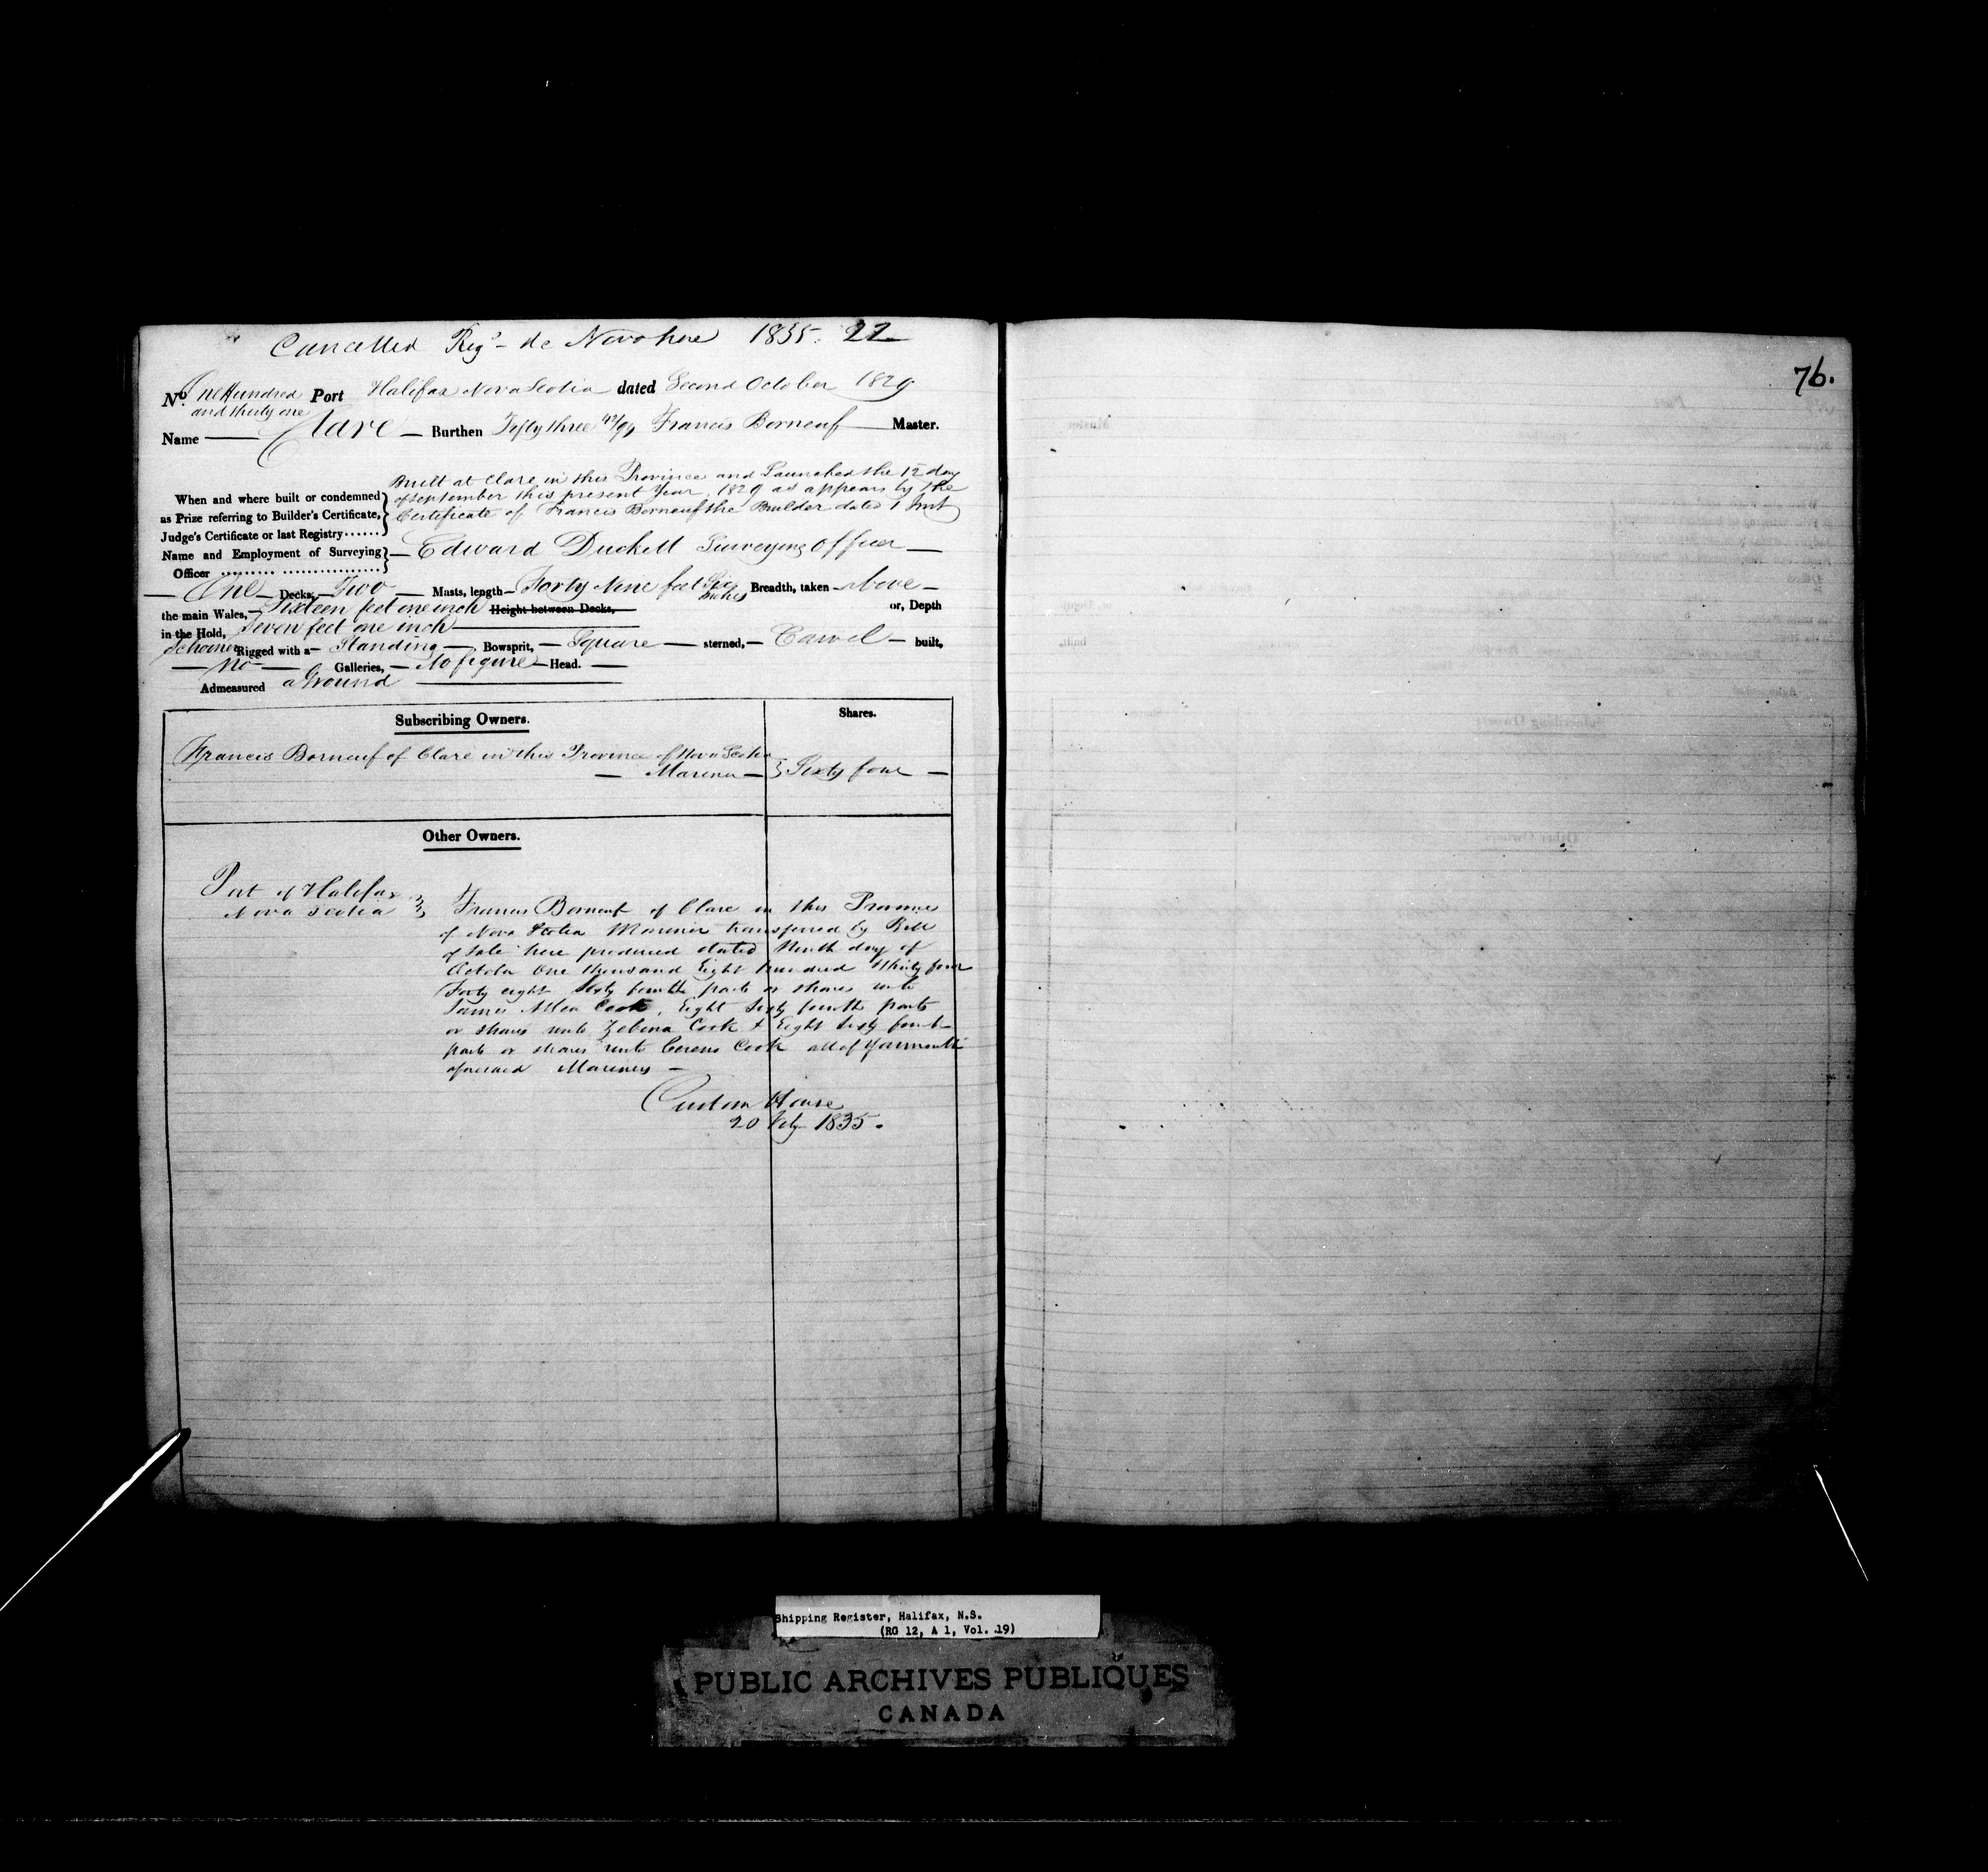 Cancelled Reg.d de Novo here 1835. 22
76.
No. One Hundred and thirty one Port Halifax Nova Scotia dated Second October 1829
Name Clare Burthen Fifty three 49/94 Francis Borneuf Master.
Built at Clare in this Province and Launched the 12 day
When and where built or condemned of September this present Year 1829 as appears by the
as Prize referring to Builder's Certificate, Certificate of Francis Borneuf the Builder dated 1 Inst
Judge's Certificate or last Registry......
Name and Employment of Surveying Edward Duckett Surveying Officer
Officer
One Decks, Two Masts, length Forty Nine feet Six Inches Breadth, taken above
the main Wales, Sixteen feet one inch Height between Decks, or, Depth
in the Hold, Seven feet one inch
Schooner Rigged with a Standing Bowsprit, Square sterned, Carvel built,
No Galleries, No figure Head.
Admeasured a Ground
Subscribing Owners. Shares.
Francis Borneuf of Clare in this Province of Nova Scotia
Mariner Sixty four
Other Owners.
Port of Halifax
Nova Scotia Francis Borneuf of Clare in this Province
of Nova Scotia Mariner transferred by Bill
of Sale here produced dated Ninth day of
October One thousand Eight hundred & thirty four
Forty eight Sixty fourth parts or shares unto
James Allen Cook, Eight Sixty fourth parts
or shares unto Zebina Cook & Eight Sixty fourth
parts or shares unto Cereno Cook all of Yarmouth
aforesaid Mariners
Custom House
20 Feby 1835.
Shipping Register, Halifax, N.S.
(RG 12, A 1, Vol. 19)
PUBLIC ARCHIVES PUBLIQUES
CANADA